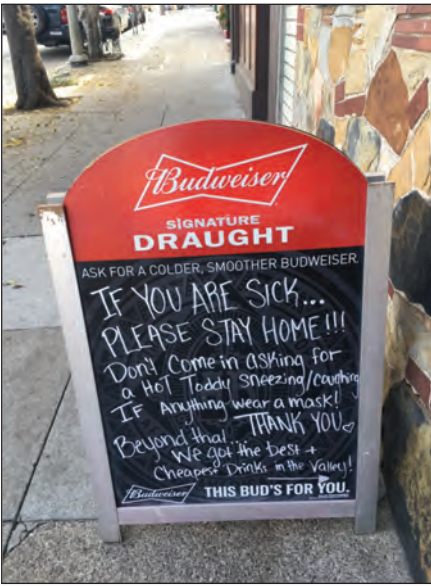 Budweiser
SIGNATURE
DRAUGHT
ASK FOR A COLDER, SMOOTHER BUDWEISER.
IF YOU ARE SICK...
PLEASE STAY HOME!!!
Don't Come in asking for
a HOT Toddy sneezing/coughing
IF Anything wear a mask!
THANK YOU
Beyond that...
We got the best +
Cheapest Drinks in the Valley!
Budweiser
THIS BUD'S FOR YOU.